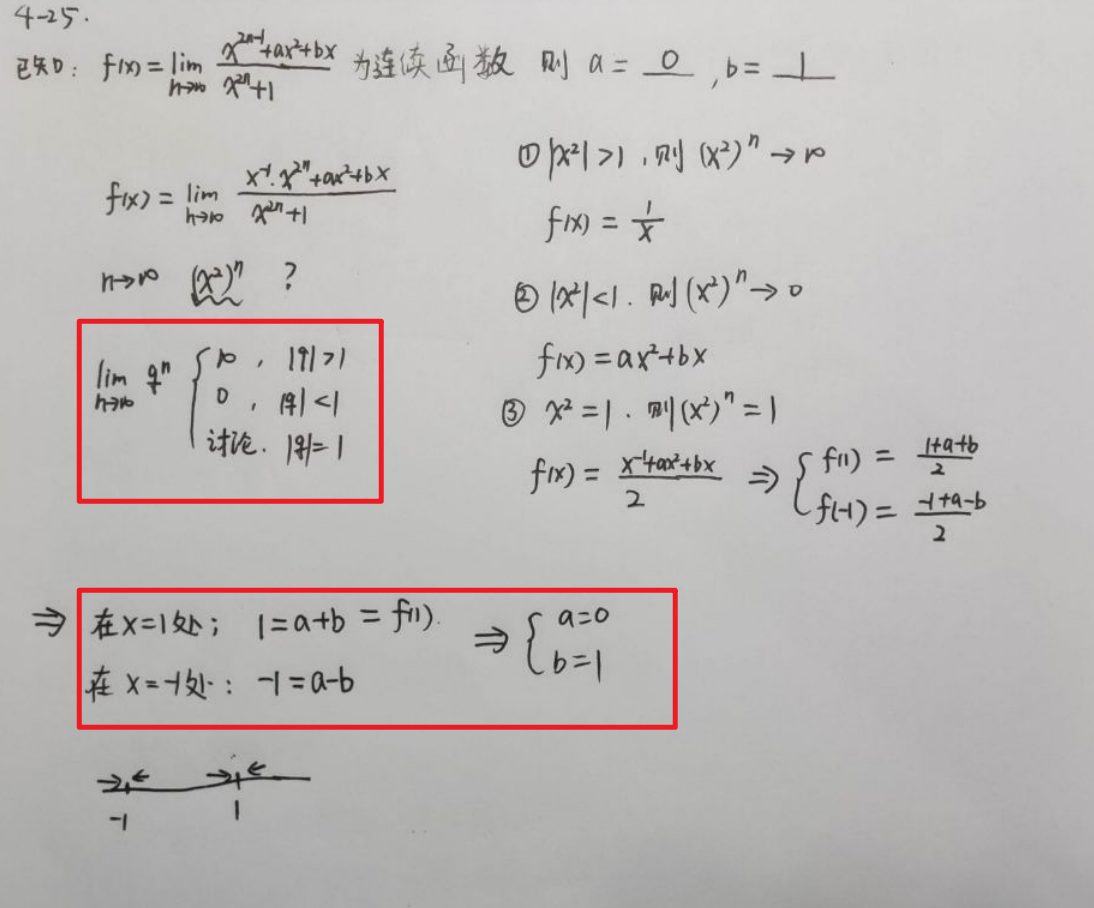 4-25.
已知: f(x) = lim n→∞ (x^(2n-1)+ax²+bx)/(x^(2n)+1) 为连续函数 则 a = 0 , b = 1
f(x) = lim n→∞ (x⁻¹·x^(2n)+ax²+bx)/(x^(2n)+1)
n→∞ (x²)ⁿ ?
lim n→∞ qⁿ { ∞ , |q|>1
0 , |q|<1
讨论. |q|=1
① |x²|>1 , 则 (x²)ⁿ → ∞
f(x) = 1/x
② |x²|<1 . 则 (x²)ⁿ → 0
f(x) = ax²+bx
③ x² = 1 . 则 (x²)ⁿ = 1
f(x) = (x⁻¹+ax²+bx)/2 ⇒ { f(1) = (1+a+b)/2
f(-1) = (-1+a-b)/2
⇒ 在x=1处; 1=a+b = f(1). ⇒ { a=0
在 x=-1处: -1=a-b b=1
-1 1